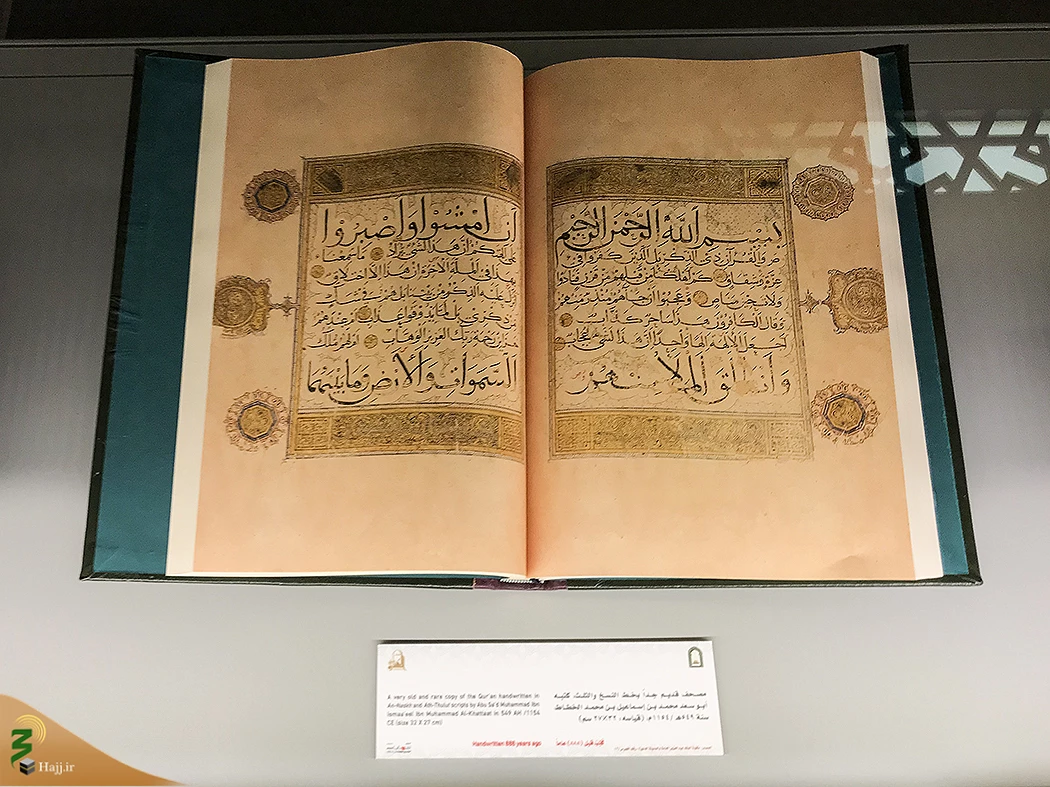 بسم الله الرحمن الرحيم
ص والقرآن ذي الذكر بل الذين كفروا في
عزة وشقاق كم أهلكنا من قبلهم من قرن فنادوا
ولات حين مناص وعجبوا أن جاءهم منذر منهم
وقال الكافرون هذا ساحر كذاب
أجعل الآلهة إلها واحدا إن هذا لشيء عجاب
وانطلق الملأ منهم
أن امشوا واصبروا
على آلهتكم إن هذا لشيء يراد ما سمعنا
بهذا في الملة الآخرة إن هذا إلا اختلاق
أنزل عليه الذكر من بيننا بل هم في شك
من ذكري بل لما يذوقوا عذاب أم عندهم
خزائن رحمة ربك العزيز الوهاب أم لهم ملك
السموات والأرض وما بينهما
مصحف قديم جداً بخط النسخ والثلث كتبه
أبو سعد محمد بن إسماعيل بن محمد الخطاط
سنة ٥٤٩هـ /١١٥٤م. (قياسه: ٣٢×٢٧ سم)
كُتب قبل (٨٨٨) عاماً
A very old and rare copy of the Qur'an handwritten in
An-Naskh and Ath-Thulut scripts by Abu Sa'd Muhammad Ibn
Ismaa'eel Ibn Muhammad Al-Khattaat in 549 AH /1154
CE (size 32 X 27 cm)
Handwritten 888 years ago
Hajj.ir